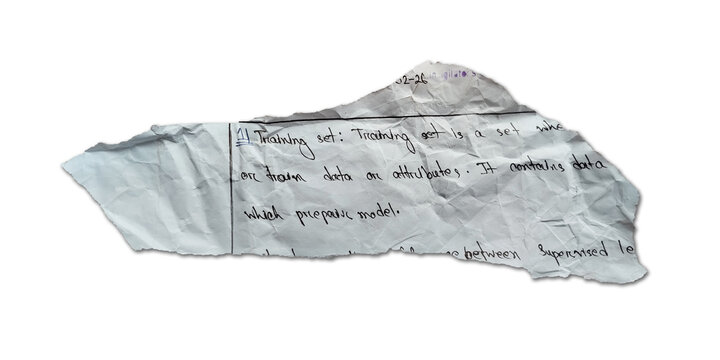 02-26
1) Training set: Training set is a set whe
are train data or attributes. It contains data
which prepare model.
between Supervised le